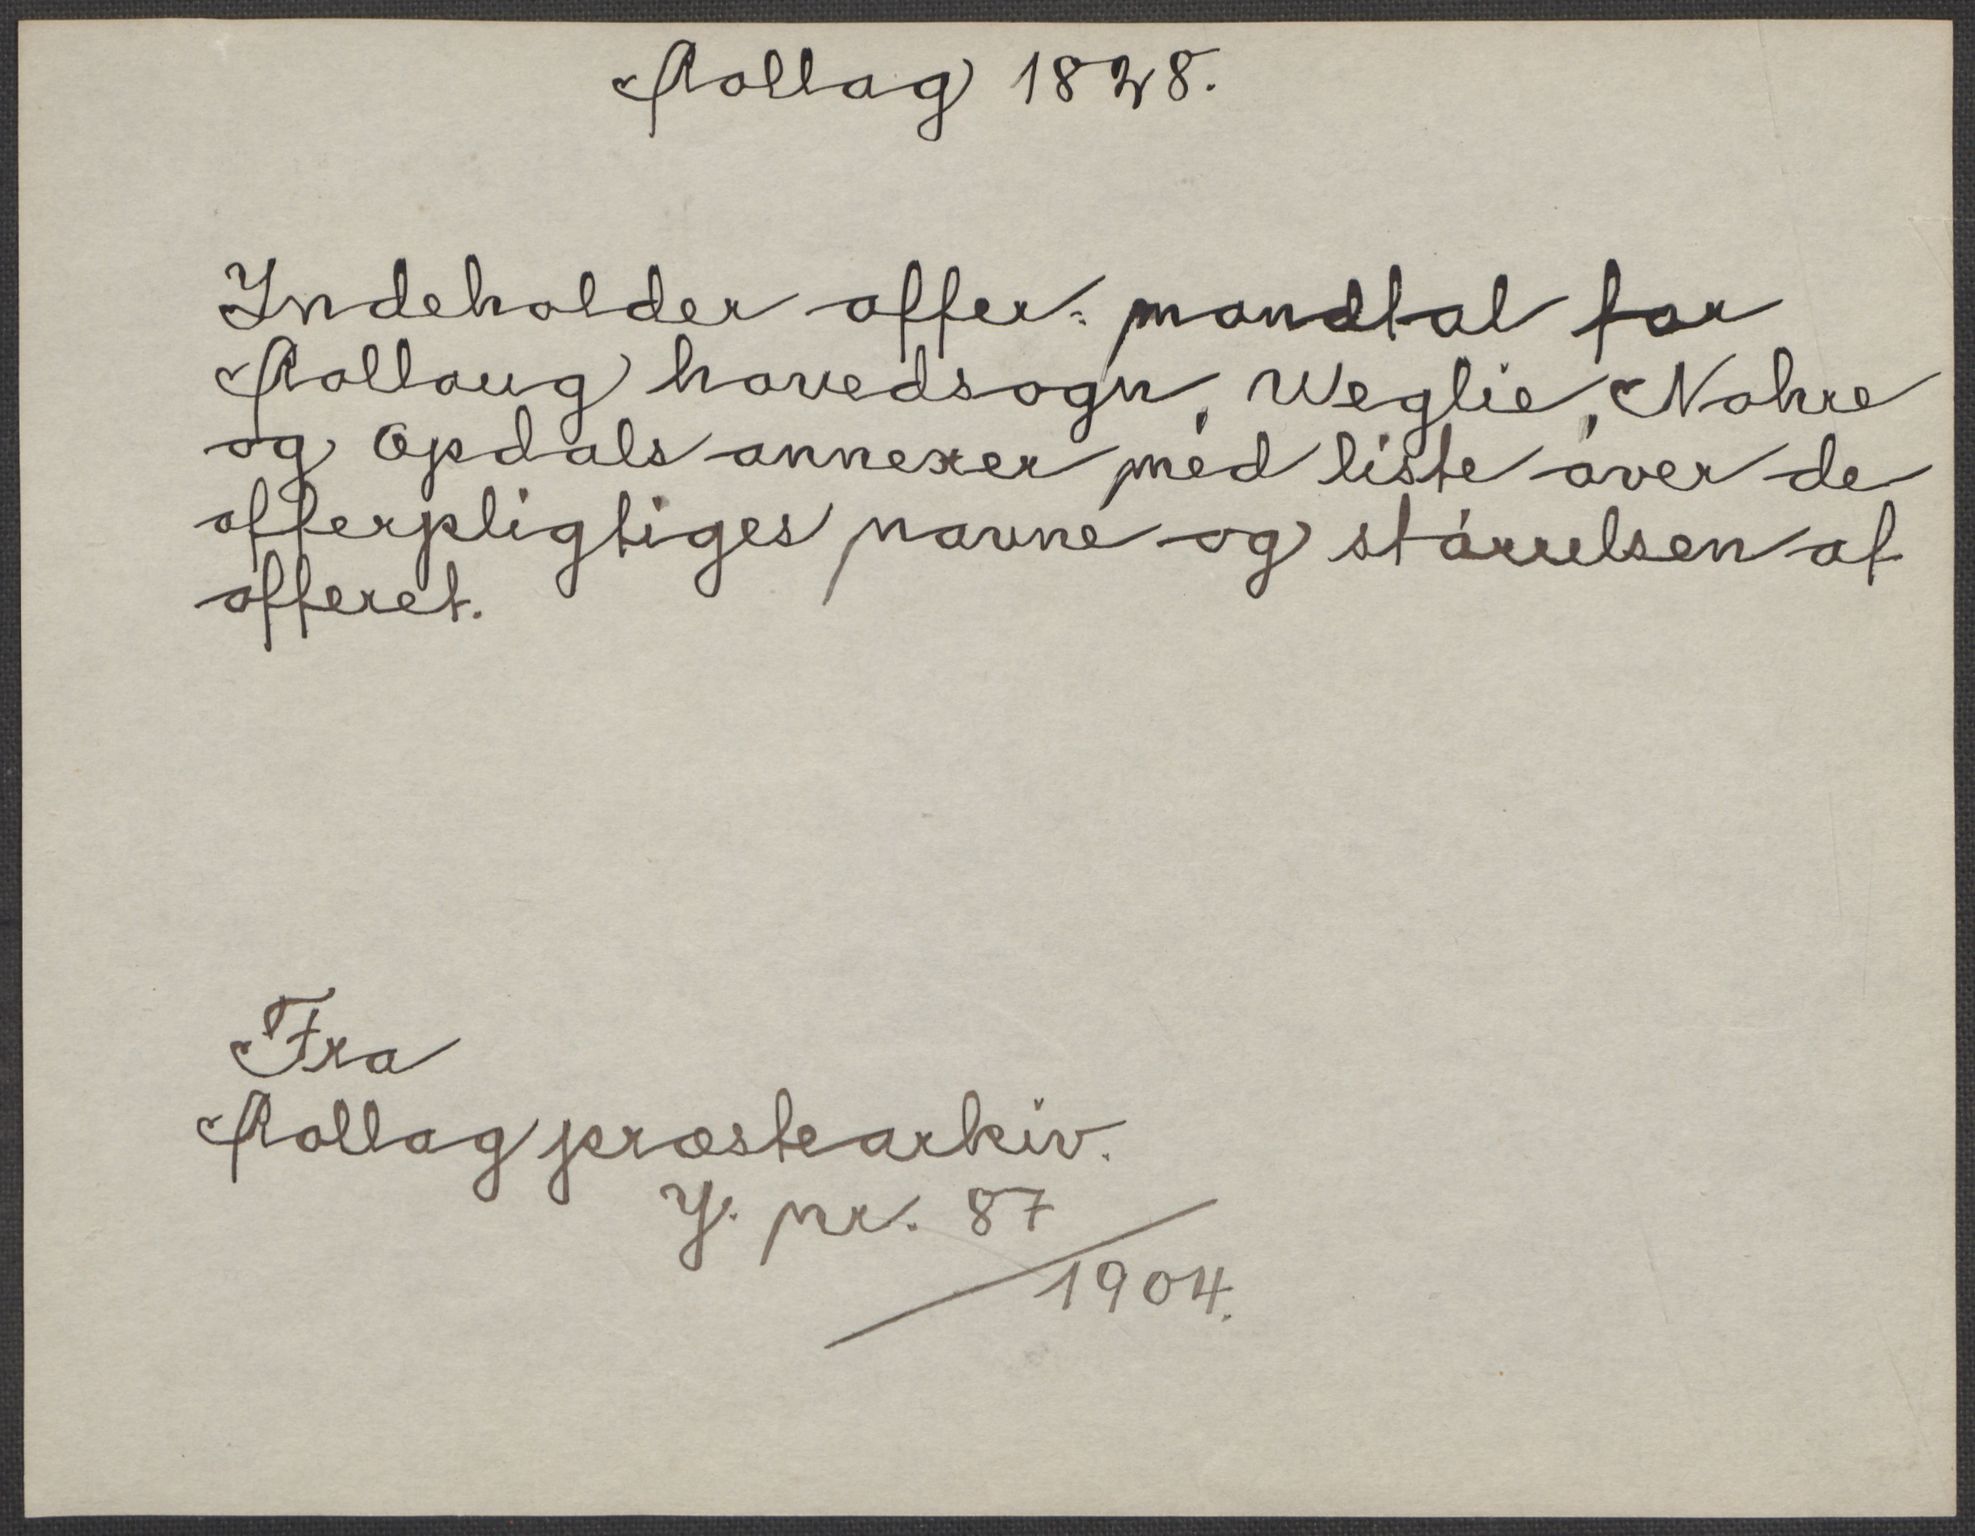 Rollag 1828.
Indeholder offer-mandtal for
Rollaug hovedsogn, Weglie, Nohre
og Opdals annexer med liste over de
offerpligtiges navne og størrelsen af
offeret.
Fra
Rollag præstearkiv.
J. nr. 87
/1904.